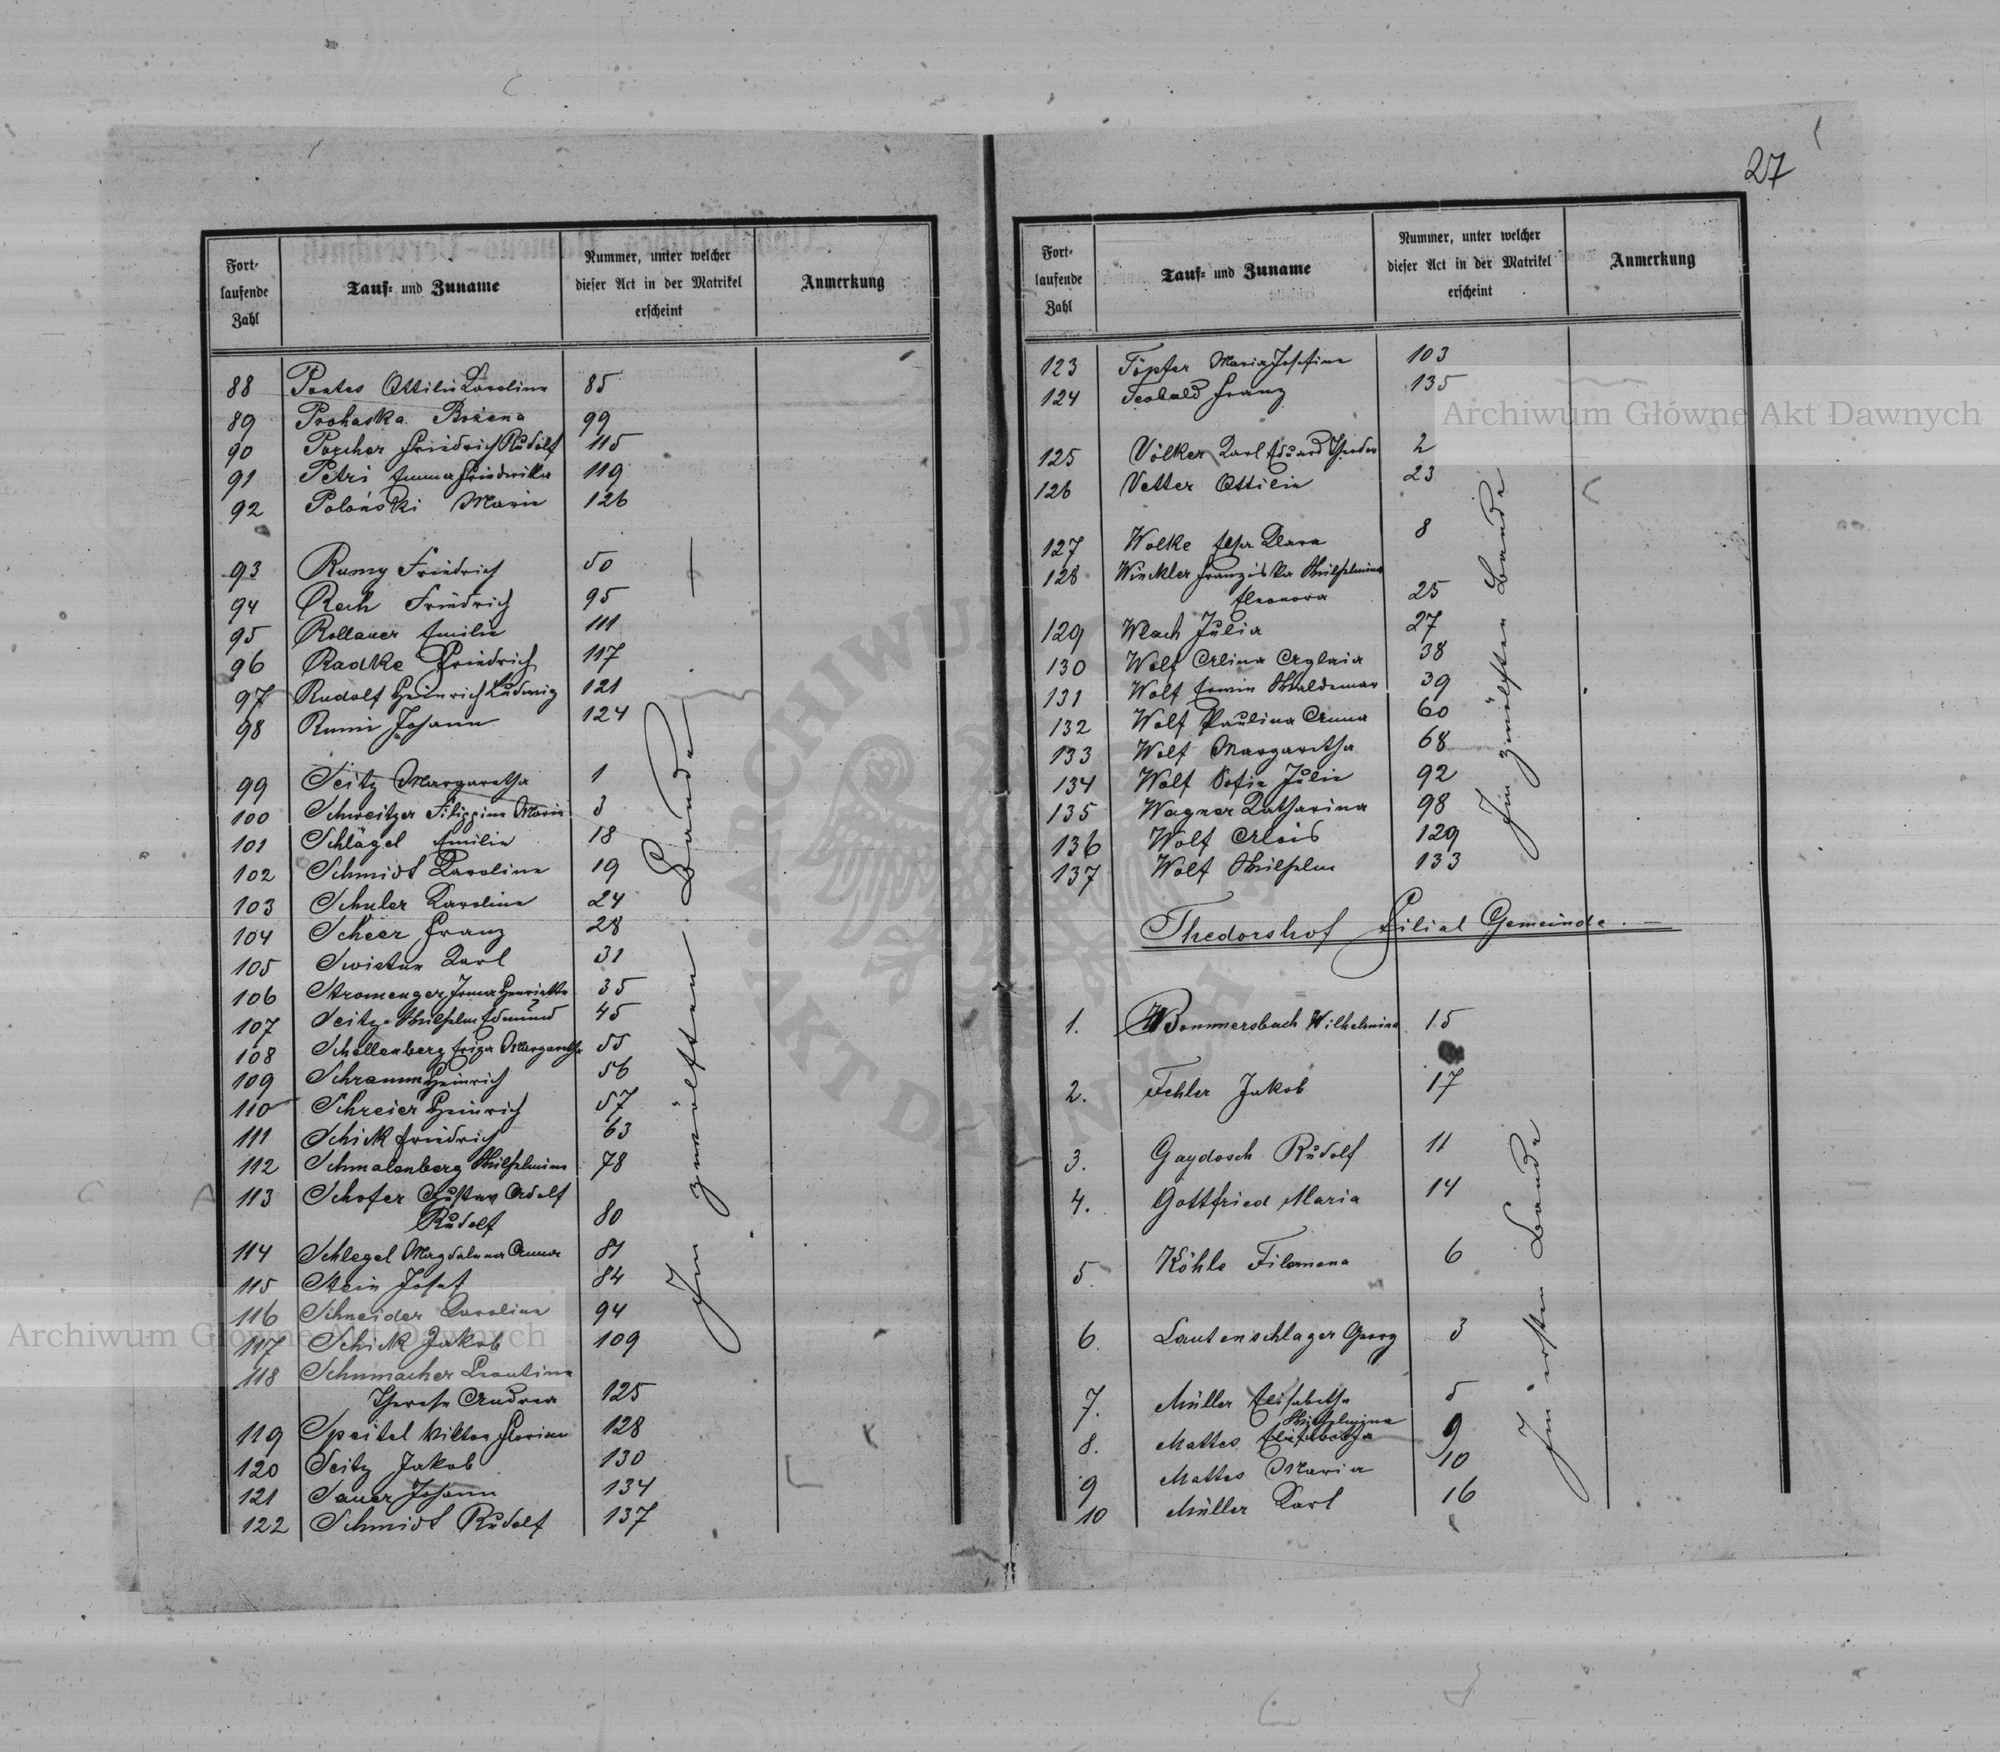 27
Fort-
laufende
Zahl
Tauf- und Zuname
Nummer, unter welcher
dieser Act in der Matrikel
erscheint
Anmerkung
88 Poetes Ottilie Karoline 85
89 Prohaska Božena 99
90 Porcher Friedrich Rudolf 115
91 Petri Emma Friederike 119
92 Poloński Marie 126
93 Rumy Friedrich 50
94 Rech Friedrich 95
95 Rollauer Emilie 111
96 Radke Friedrich 117
97 Rudolf Heinrich Ludwig 121
98 Rumi Johann 124
99 Seitz Margaretha 1
100 Schweitzer Filippine Marie 3
101 Schlägel Emilie 18
102 Schmidt Karoline 19
103 Schuler Karoline 24
104 Scheer Franz 28
105 Swistun Karl 31
106 Stromenger Irma Henriette 35
107 Seitz Wilhelm Edmund 45
108 Schellenberg Eriga Margaretha 55
109 Schramm Heinrich 56
110 Schreier Heinrich 57
111 Schick Friedrich 63
112 Schmalenberg Wilhelmine 78
113 Schofer Gustav Adolf
Rudolf 80
114 Schlegel Magdalena Anna 81
115 Stein Josef 84
116 Schneider Karoline 94
117 Schick Jakob 109
118 Schumacher Leontine
Therese Andrea 125
119 Speitel Viktor Florian 128
120 Seitz Jakob 130
121 Sauer Johann 134
122 Schmidt Rudolf 137
Im zwölften Bande
Fort-
laufende
Zahl
Tauf- und Zuname
Nummer, unter welcher
dieser Act in der Matrikel
erscheint
Anmerkung
123 Töpfer Maria Josefine 103
124 Teobald Franz 135
125 Völker Karl Eduard Theodor 2
126 Vetter Ottilie 23
127 Wolke Elsa Klara 8
128 Winckler Franziska Wilhelmine
Eleonora 25
129 Wlach Julia 27
130 Wolf Alina Aglaia 38
131 Wolf Erwin Waldemar 39
132 Wolf Paulina Anna 60
133 Wolf Margaretha 68
134 Wolf Sofie Julie 92
135 Wagner Katharina 98
136 Wolf Alois 129
137 Wolf Wilhelm 133
Im zwölften Bande
Thedorshof Filial Gemeinde.
1. Bommersbach Wilhelmine 15
2. Fehler Jakob 17
3. Gaydosch Rudolf 11
4. Gottfried Maria 14
5. Köhle Filomena 6
6. Lautenschlager Georg 3
7. Müller Elisabetha 5
Wilhelmina
8. Mattes Elisabetha 9
9 Mattes Maria 10
10 Müller Karl 16
Im ersten Bande
Archiwum Główne Akt Dawnych
Archiwum Główne Akt Dawnych
ARCHIWUM
AKT DAWNYCH